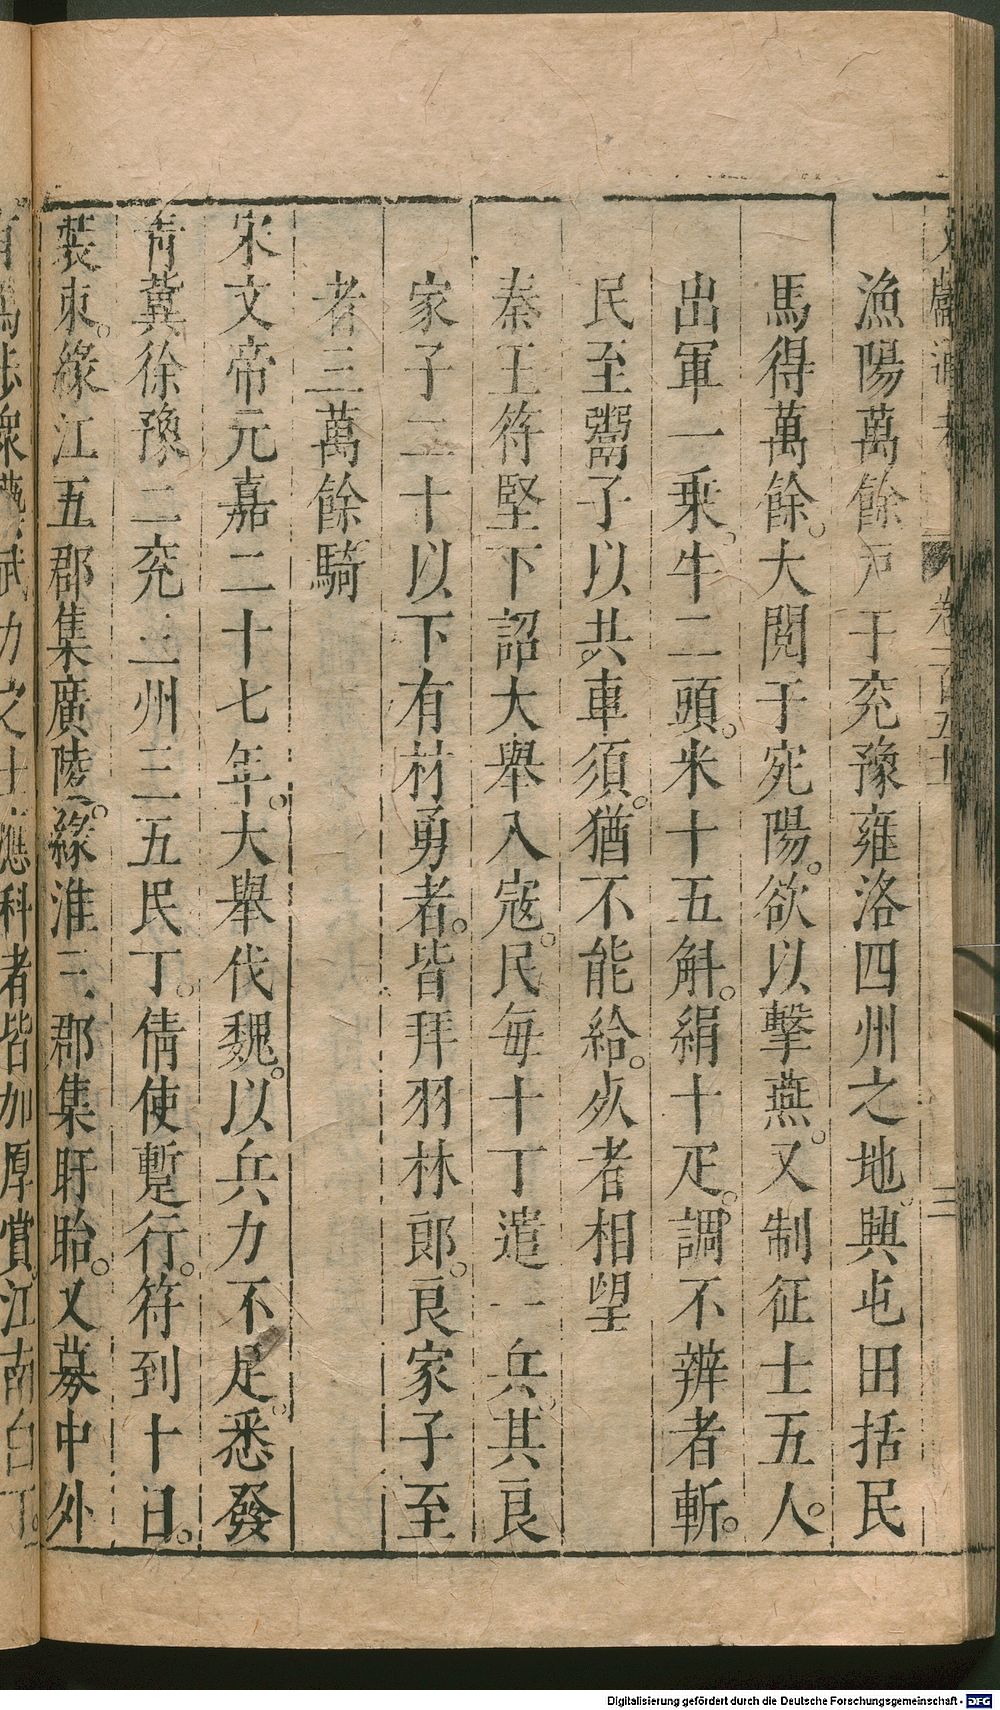 漁陽萬餘戶于兖豫雍洛四州之地興屯田括民
馬得萬餘。大閱于宛陽。欲以擊燕。又制征士五人。
出軍一乗。牛二頭。米十五斛。絹十疋。調不辨者斬。
民至鬻子以共車須。猶不能給。死者相望
秦王符堅下詔大舉入寇。民每十丁遣一兵。其良
家子二十以下有材勇者。皆拜羽林郎。良家子至
者三萬餘騎
宋文帝元嘉二十七年。大舉伐魏。以兵力不足。悉發
青冀徐豫二兖六州三五民丁。倩使蹔行。符到十日。
裝束。緣江五郡集廣陵。緣淮三郡集盱眙。又募中外
有馬步衆藝武力之士應科者皆加厚賞江南白丁。
Digitalisierung gefördert durch die Deutsche Forschungsgemeinschaft - DFG